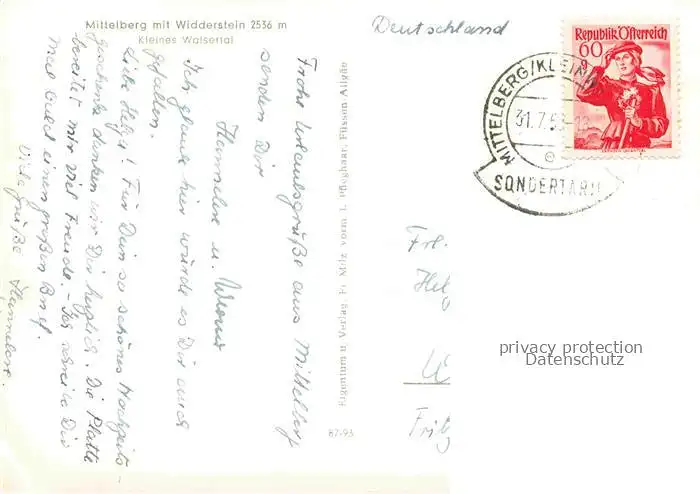 Mittelberg mit Widderstein 2536 m
Kleines Walsertal
Frohe Urlaubsgrüße aus Mittelberg
senden Dir
Hannelore u.
Ich glaube hier würde es Dir auch
gefallen.
Liebe Helga! Für Dein so schönes Hochzeits-
geschenk danken wir Dir herzlich. Die Platte
bereitet mir viel Freude. - Ich schreibe Dir
mal bald einen großen Brief.
Viele Grüße Hannelore.
Eigentum u. Verlag Fr. Milz vorm. J. Pfleghaar, Füssen-Allgäu
87-93
Deutschland
Republik Österreich
60
MITTELBERG/KLEIN
31.7.5
SONDERTARIF
Frl.
Hel
Fritz
privacy protection
Datenschutz